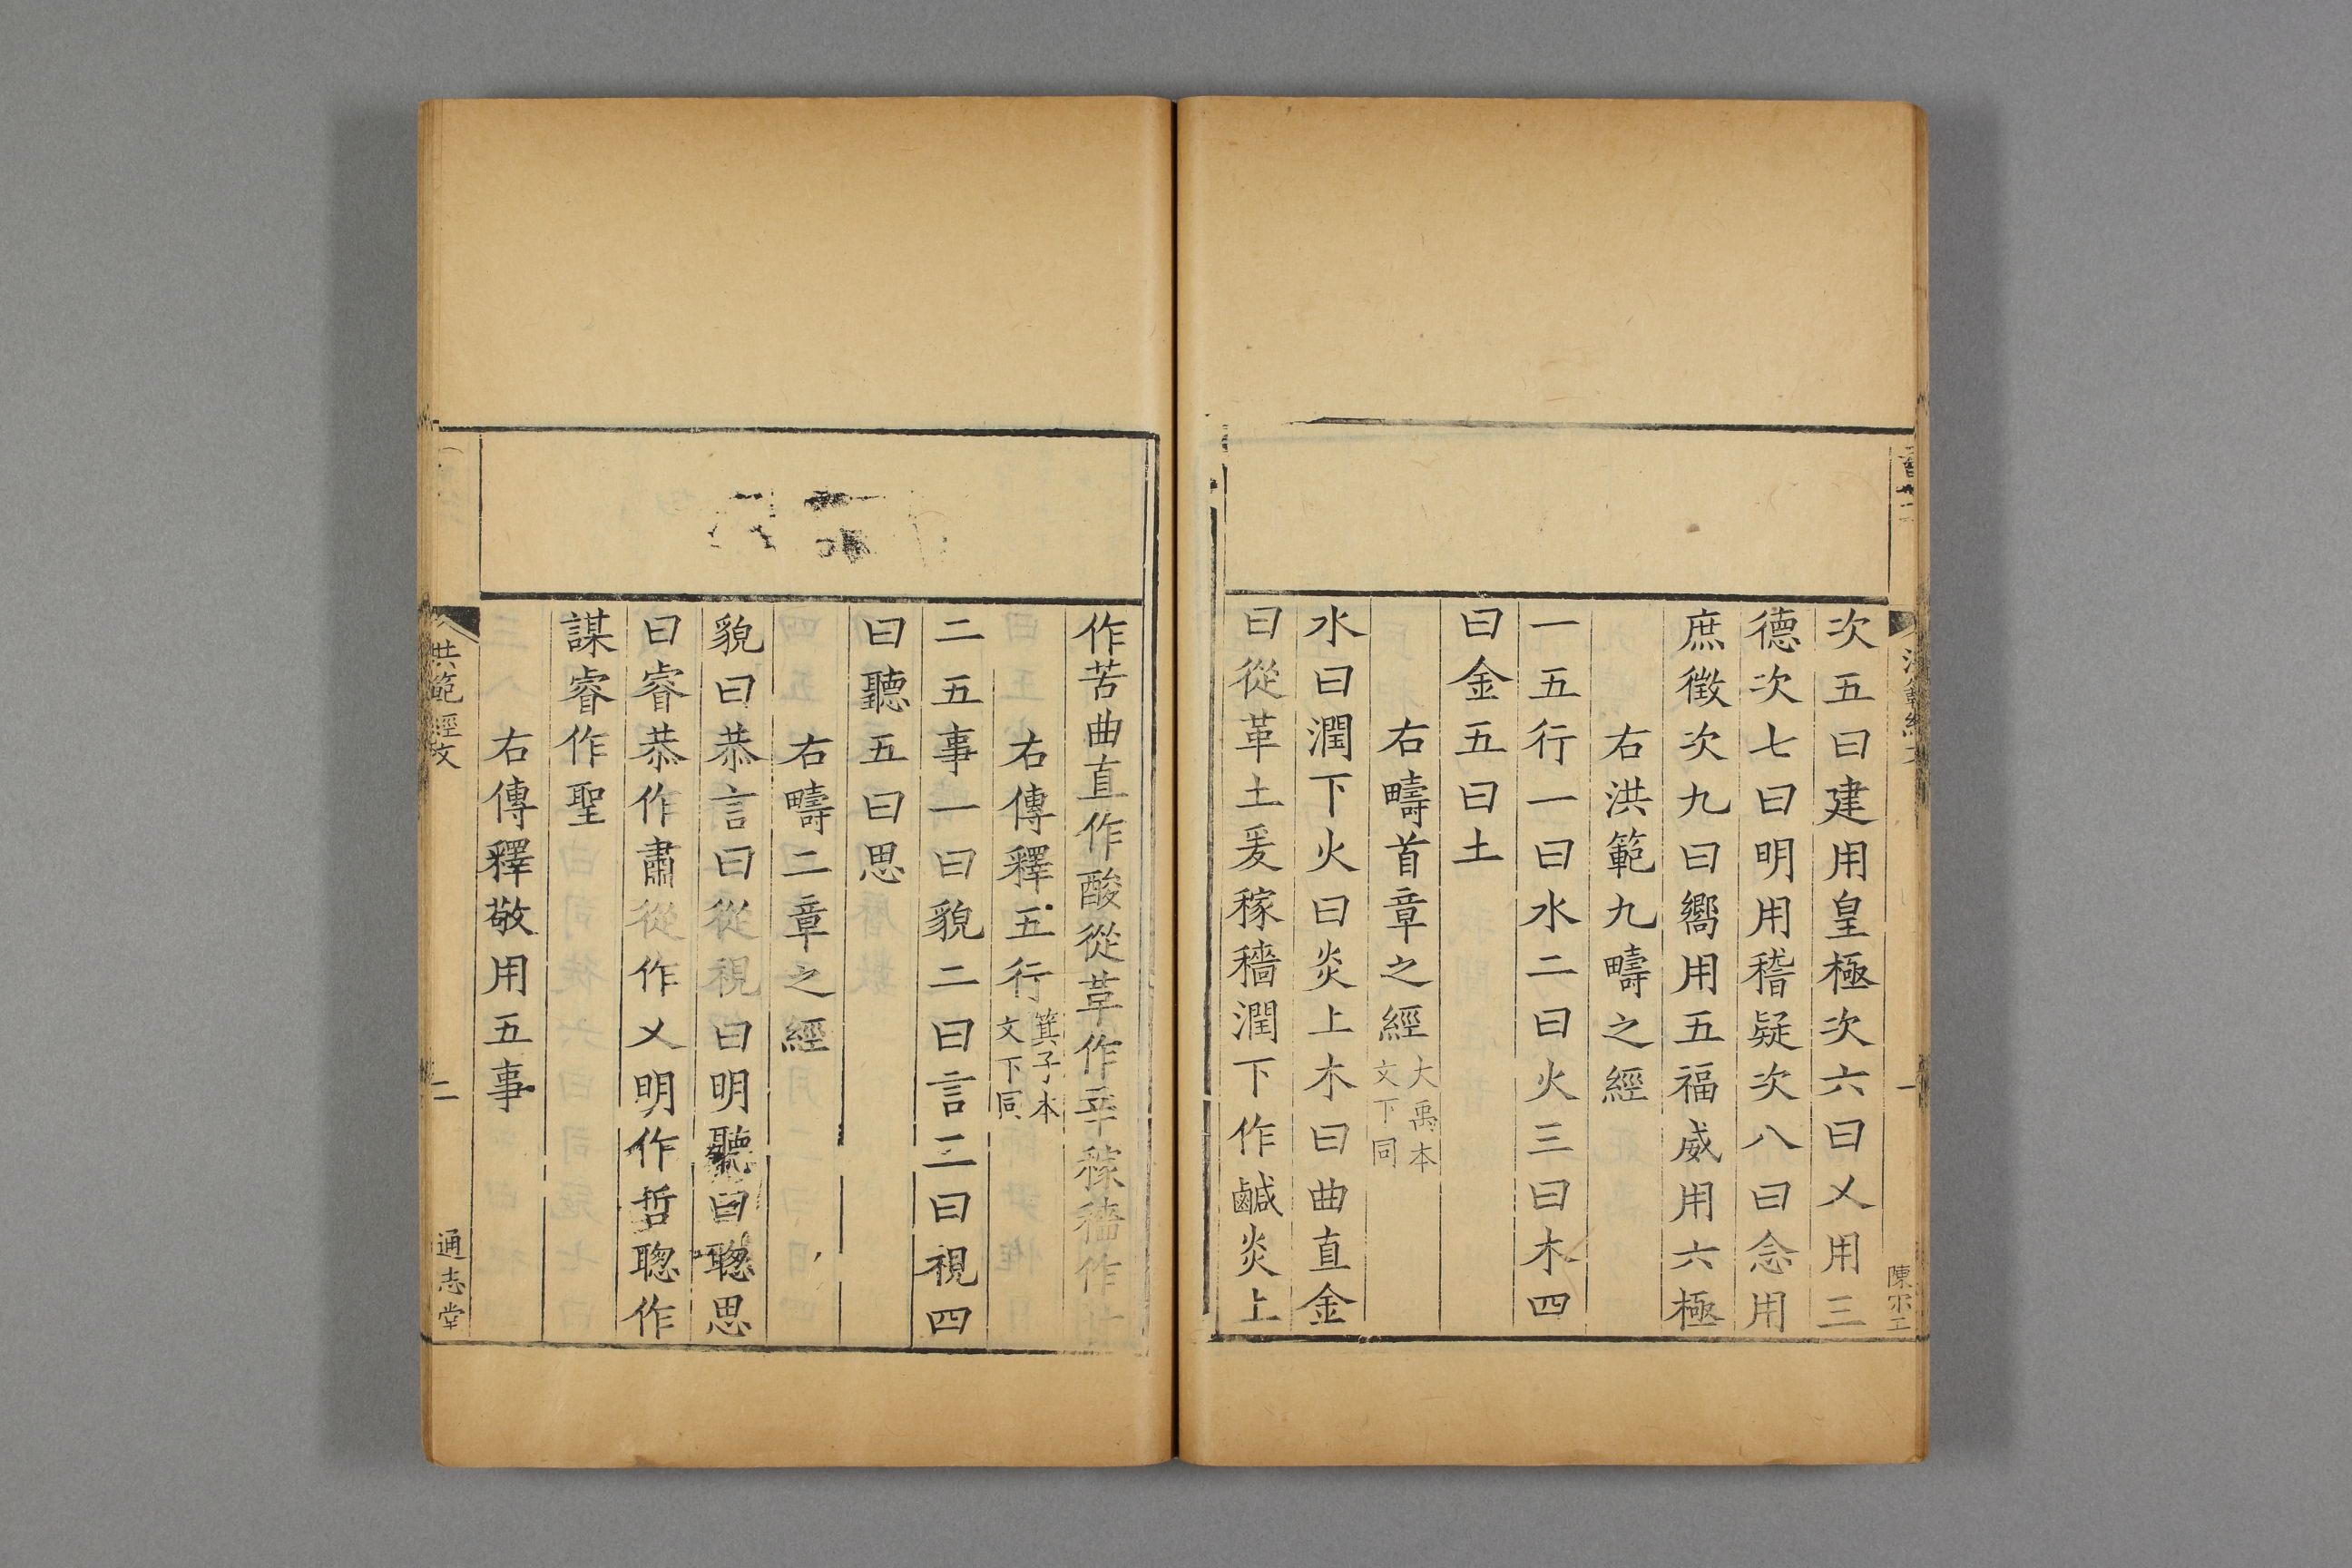 次五曰建用皇極次六曰乂用三
德次七曰明用稽疑次八曰念用
庶徵次九曰嚮用五福威用六極
右洪範九疇之經
一五行一曰水二曰火三曰木四
曰金五曰土
右疇首章之經大禹本文下同
水曰潤下火曰炎上木曰曲直金
曰從革土爰稼穡潤下作鹹炎上
一
陳宗工
作苦曲直作酸從革作辛稼穡作甘
右傳釋五行箕子本文下同
二五事一曰貌二曰言三曰視四
曰聽五曰思
右疇二章之經
貌曰恭言曰從視曰明聽曰聰思
曰睿恭作肅從作乂明作哲聰作
謀睿作聖
右傳釋敬用五事
洪範經文
二
通志堂